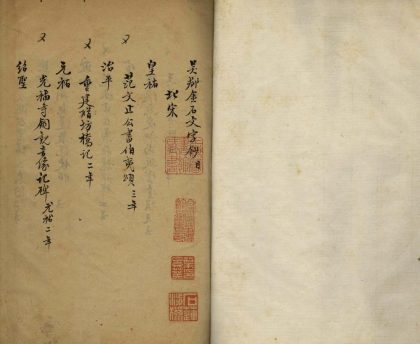 吳郡金石文字鈔目
北宋
皇祐
又 范文正公書伯夷頌三年
治平
又 重建楮坊橋記二年
元祐
又 光福寺銅觀音像記碑元祐二年
紹聖